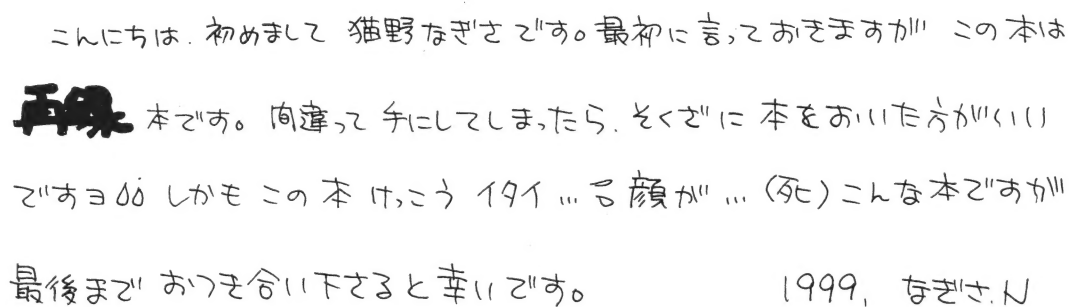 こんにちは、初めまして 猫野なぎさです。最初に言っておきますが この本は
本です。間違って手にしてしまったら、そくざに本をおいた方がいい
ですヨ しかもこの本けっこうイタイ…顔が…(死)こんな本ですが
最後までおつき合い下さると幸いです。 1999. なぎさ.N